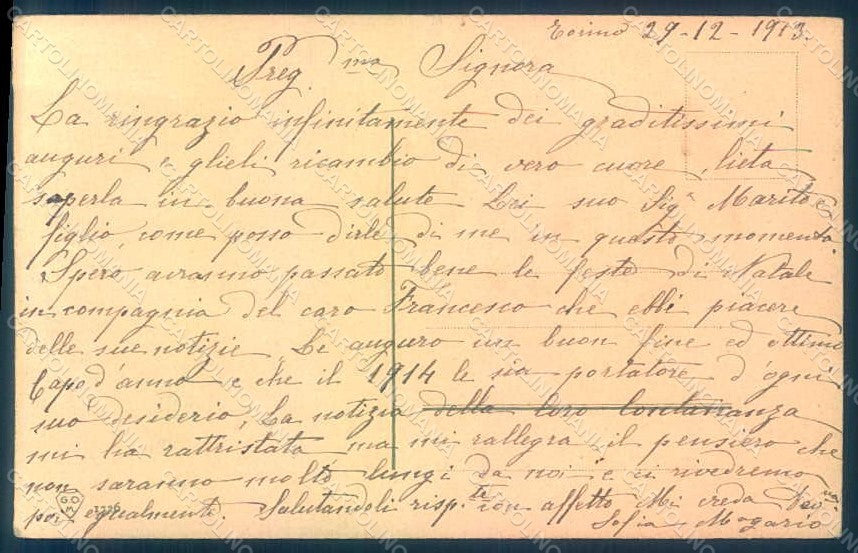 Torino 29-12-1913.
Preg.ma Signora
La ringrazio infinitamente dei graditissimi
auguri e glieli ricambio di vero cuore, lieta
saperla in buona salute Lei suo Sig.r Marito e
figlio, come posso dirle di me in questo momento.
Spero avranno passato bene le feste di Natale
in compagnia del caro Francesco che ebbi piacere
delle sue notizie. Le auguro un buon fine ed ottimo
Capo d'anno e che il 1914 le sia portatore d'ogni
suo desiderio, La notizia della loro lontananza
mi ha rattristata ma mi rallegra il pensiero che
non saranno molto lungi da noi e ci rivedremo
poi egualmente. Salutandoli risp.te con affetto Mi creda
Sofia Magario
G.D.M.
CARTOLINOMANIA